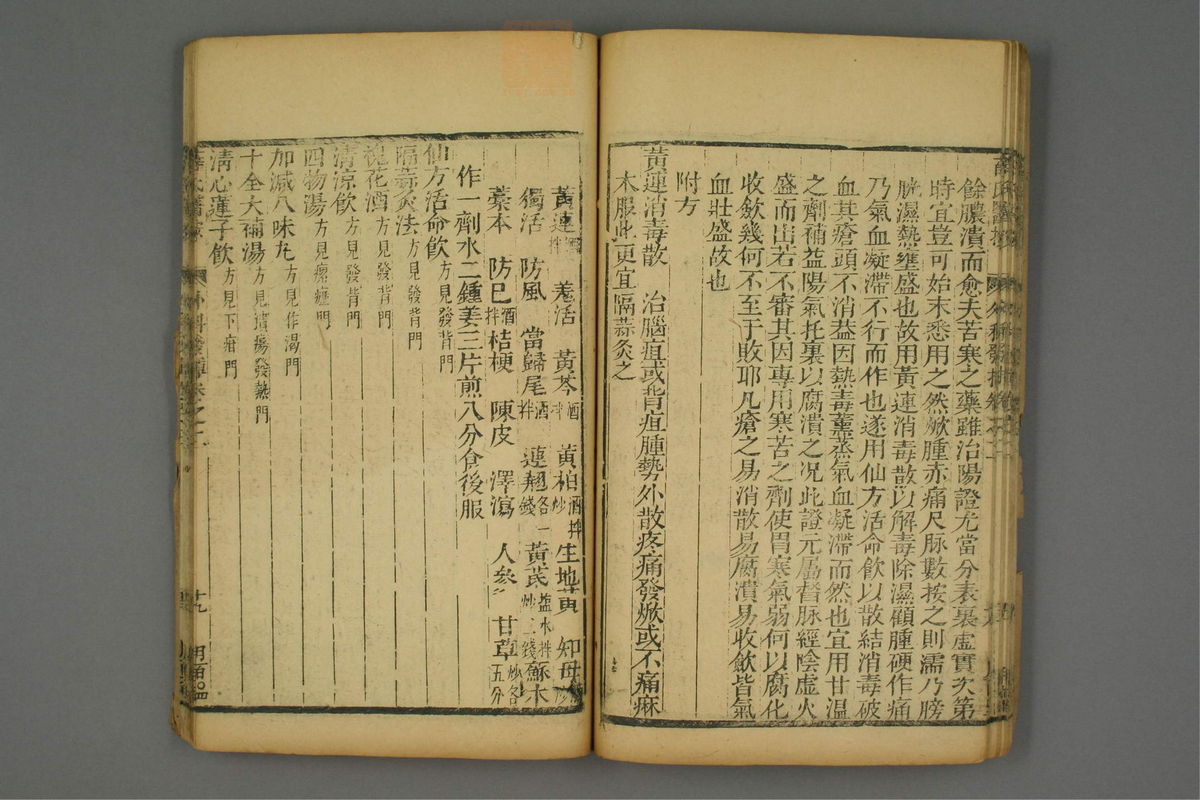 餘膿潰而愈夫苦寒之藥雖治陽證尤當分表裏虛實次第
時宜豈可始末悉用之然焮腫赤痛尺脉數按之則濡乃膀
胱濕熱壅盛也故用黃連消毒散以解毒除濕顧腫硬作痛
乃氣血凝滯不行而作也遂用仙方活命飲以散結消毒破
血其瘡頭不消葢因熱毒薰蒸氣血凝滯而然也宜用甘温
之劑補益陽氣托裏以腐潰之况此證元屬督脉經陰虛火
盛而出若不審其因專用寒苦之劑使胃寒氣弱何以腐化
收歛幾何不至于敗耶凡瘡之易消散易腐潰易收歛皆氣
血壯盛故也
附方
黃連消毒散 治腦疽或背疽腫勢外散疼痛發焮或不痛麻
木服此更宜隔蒜灸之
黃連 羗活 黃芩 黃柏酒拌炒 生地黃 知母
獨活 防風 當歸尾酒拌 連翹各一錢 黃芪鹽水拌炒二錢 蘇木
藁本 防巳酒拌 桔梗 陳皮 澤瀉 人參 甘草炒各五分
作一劑水二鍾姜三片煎八分食後服
仙方活命飲方見發背門
隔蒜灸法方見發背門
槐花酒方見發背門
清涼飲方見發背門
四物湯方見瘰癧門
加減八味丸方見作渴門
十全大補湯方見潰瘍發熱門
清心蓮子飲方見下疳門
十九